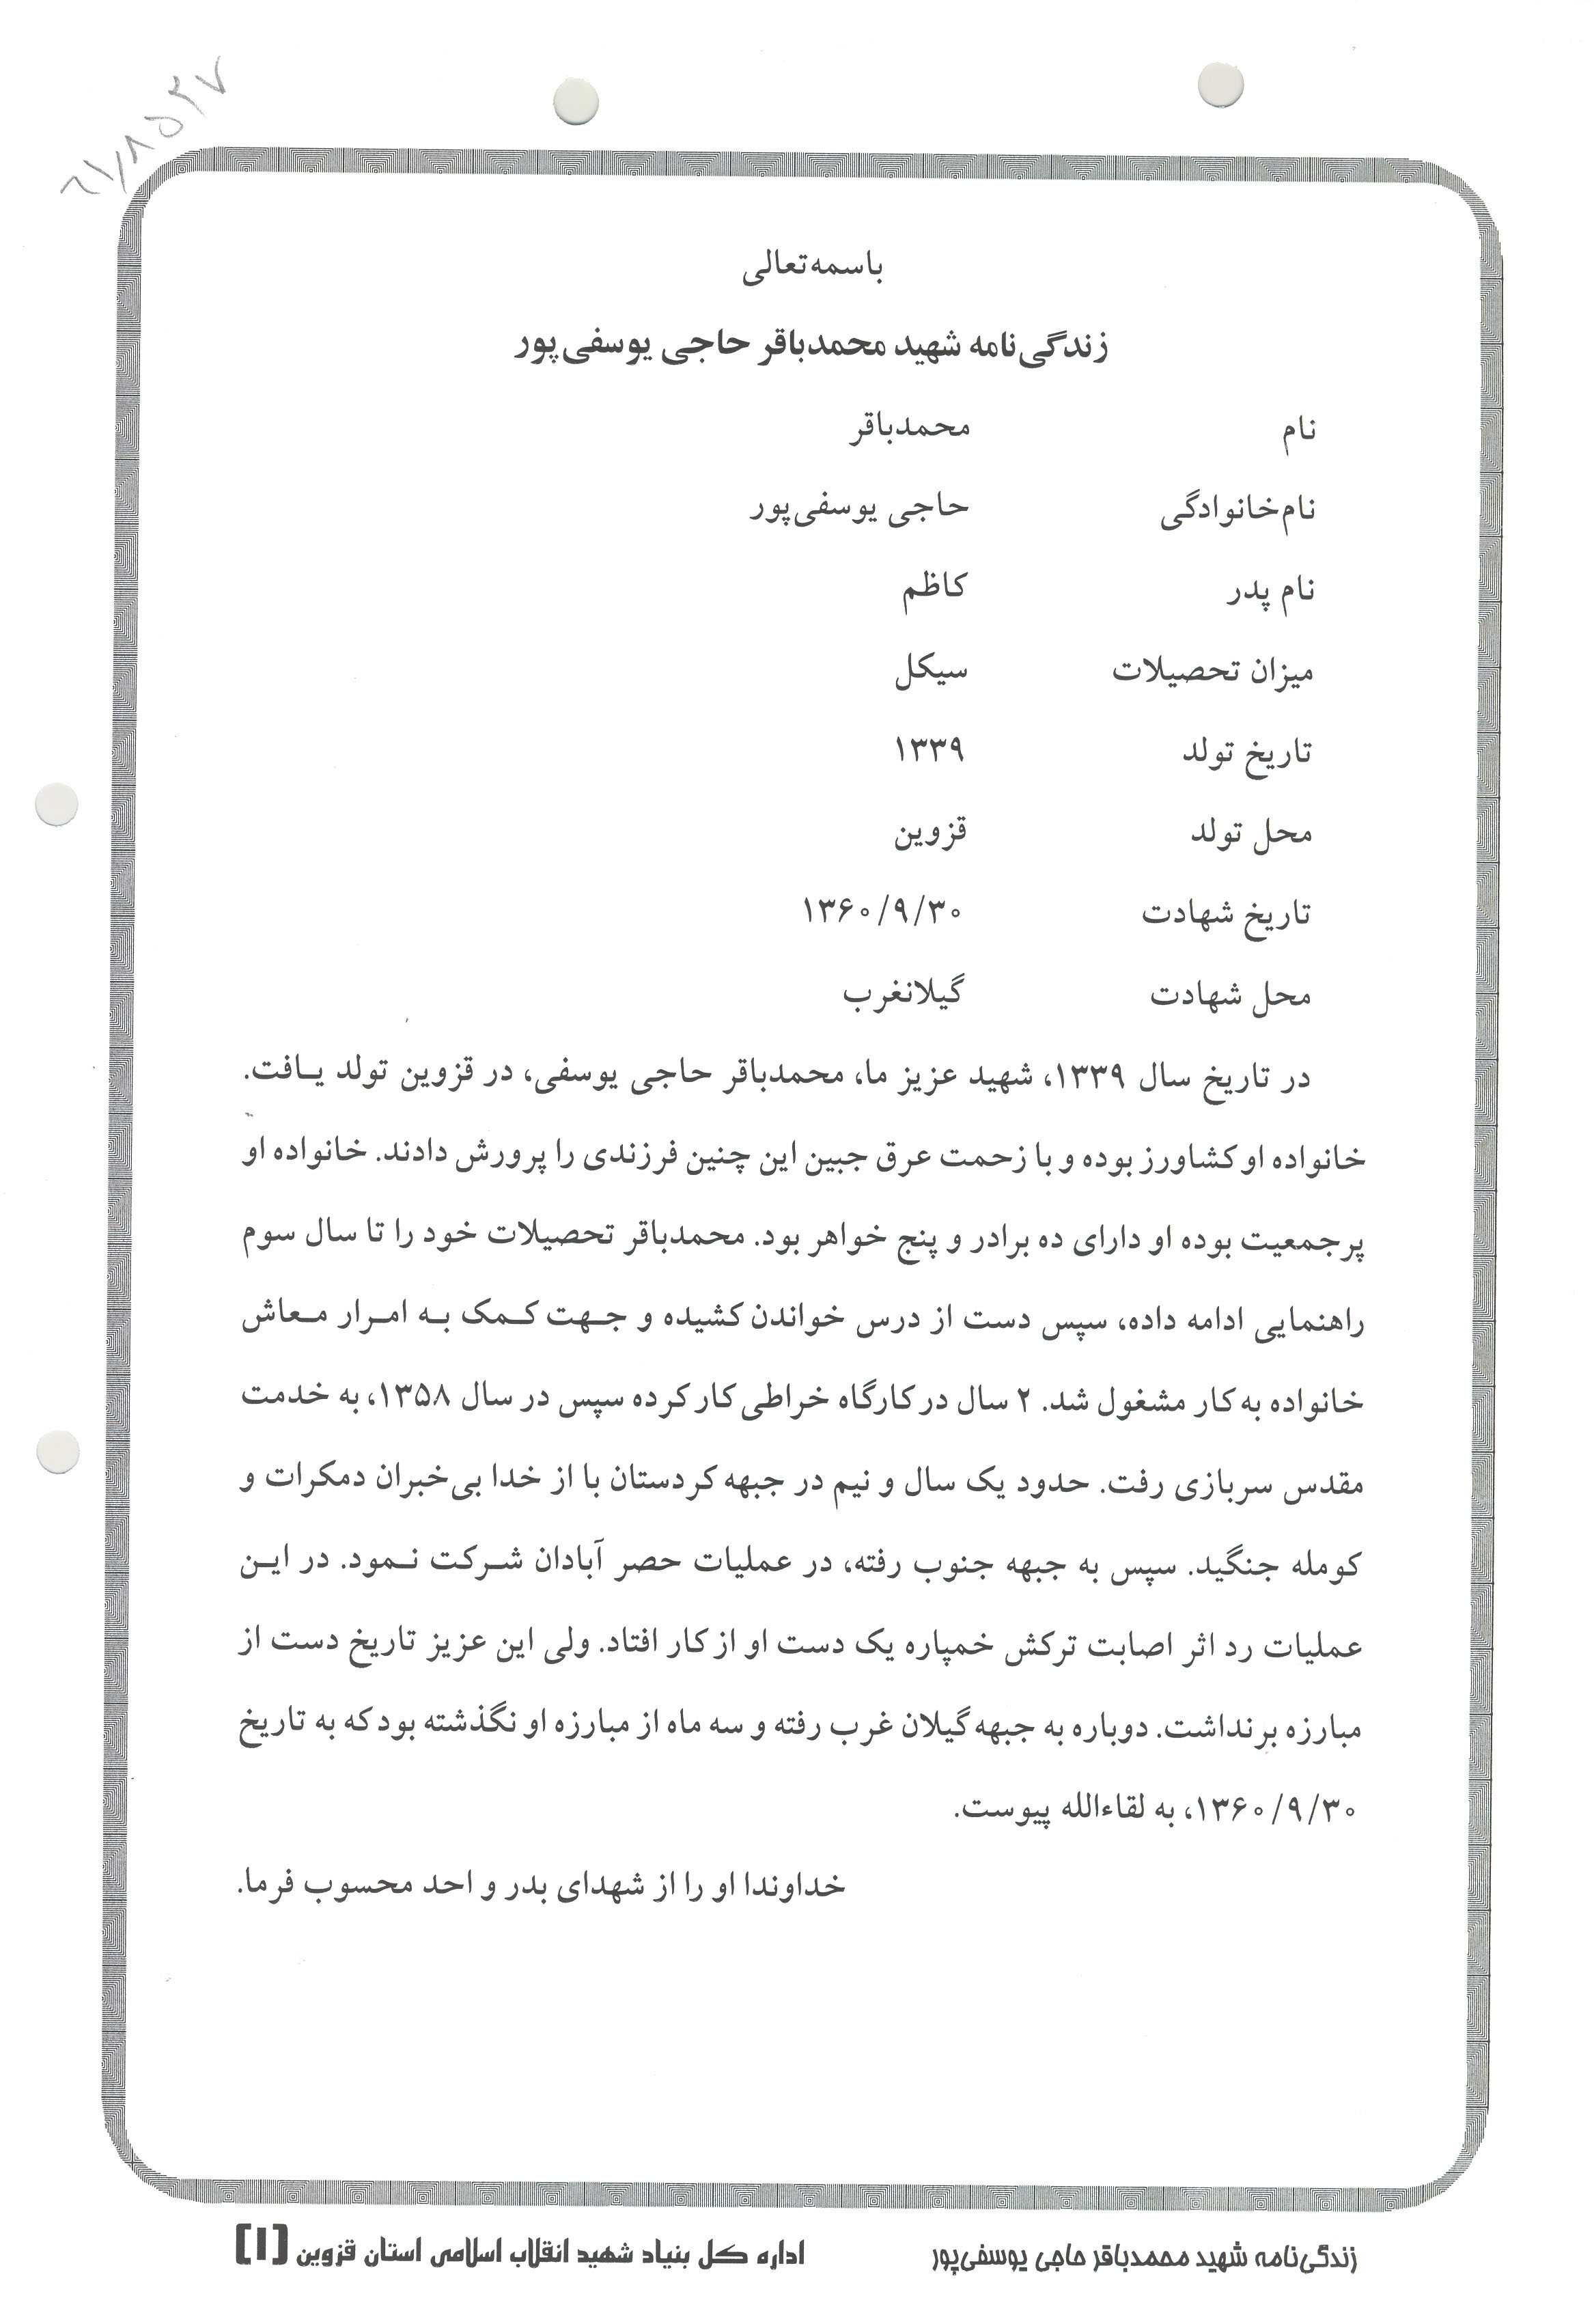 باسمه‌تعالی
زندگی‌نامه شهید محمدباقر حاجی یوسفی‌پور
نام محمدباقر
نام‌خانوادگی حاجی یوسفی‌پور
نام پدر کاظم
میزان تحصیلات سیکل
تاریخ تولد ۱۳۳۹
محل تولد قزوین
تاریخ شهادت ۱۳۶۰/۹/۳۰
محل شهادت گیلانغرب
در تاریخ سال ۱۳۳۹، شهید عزیز ما، محمدباقر حاجی یوسفی، در قزوین تولد یـافت.
خانواده او کشاورز بوده و با زحمت عرق جبین این چنین فرزندی را پرورش دادند. خانواده او
پرجمعیت بوده او دارای ده برادر و پنج خواهر بود. محمدباقر تحصیلات خود را تا سال سوم
راهنمایی ادامه داده، سپس دست از درس خواندن کشیده و جـهت کـمک بـه امـرار مـعاش
خانواده به کار مشغول شد. ۲ سال در کارگاه خراطی کار کرده سپس در سال ۱۳۵۸، به خدمت
مقدس سربازی رفت. حدود یک سال و نیم در جبهه کردستان با از خدا بی‌خبران دمکرات و
کومله جنگید. سپس به جبهه جنوب رفته، در عملیات حصر آبادان شـرکت نـمود. در ایـن
عملیات رد اثر اصابت ترکش خمپاره یک دست او از کار افتاد. ولی این عزیز تاریخ دست از
مبارزه برنداشت. دوباره به جبهه گیلان غرب رفته و سه ماه از مبارزه او نگذشته بود که به تاریخ
۱۳۶۰/۹/۳۰، به لقاءالله پیوست.
خداوندا او را از شهدای بدر و احد محسوب فرما.
زندگی‌نامه شهید محمدباقر حاجی یوسفی‌پور اداره کل بنیاد شهید انقلاب اسلامی استان قزوین [۱]